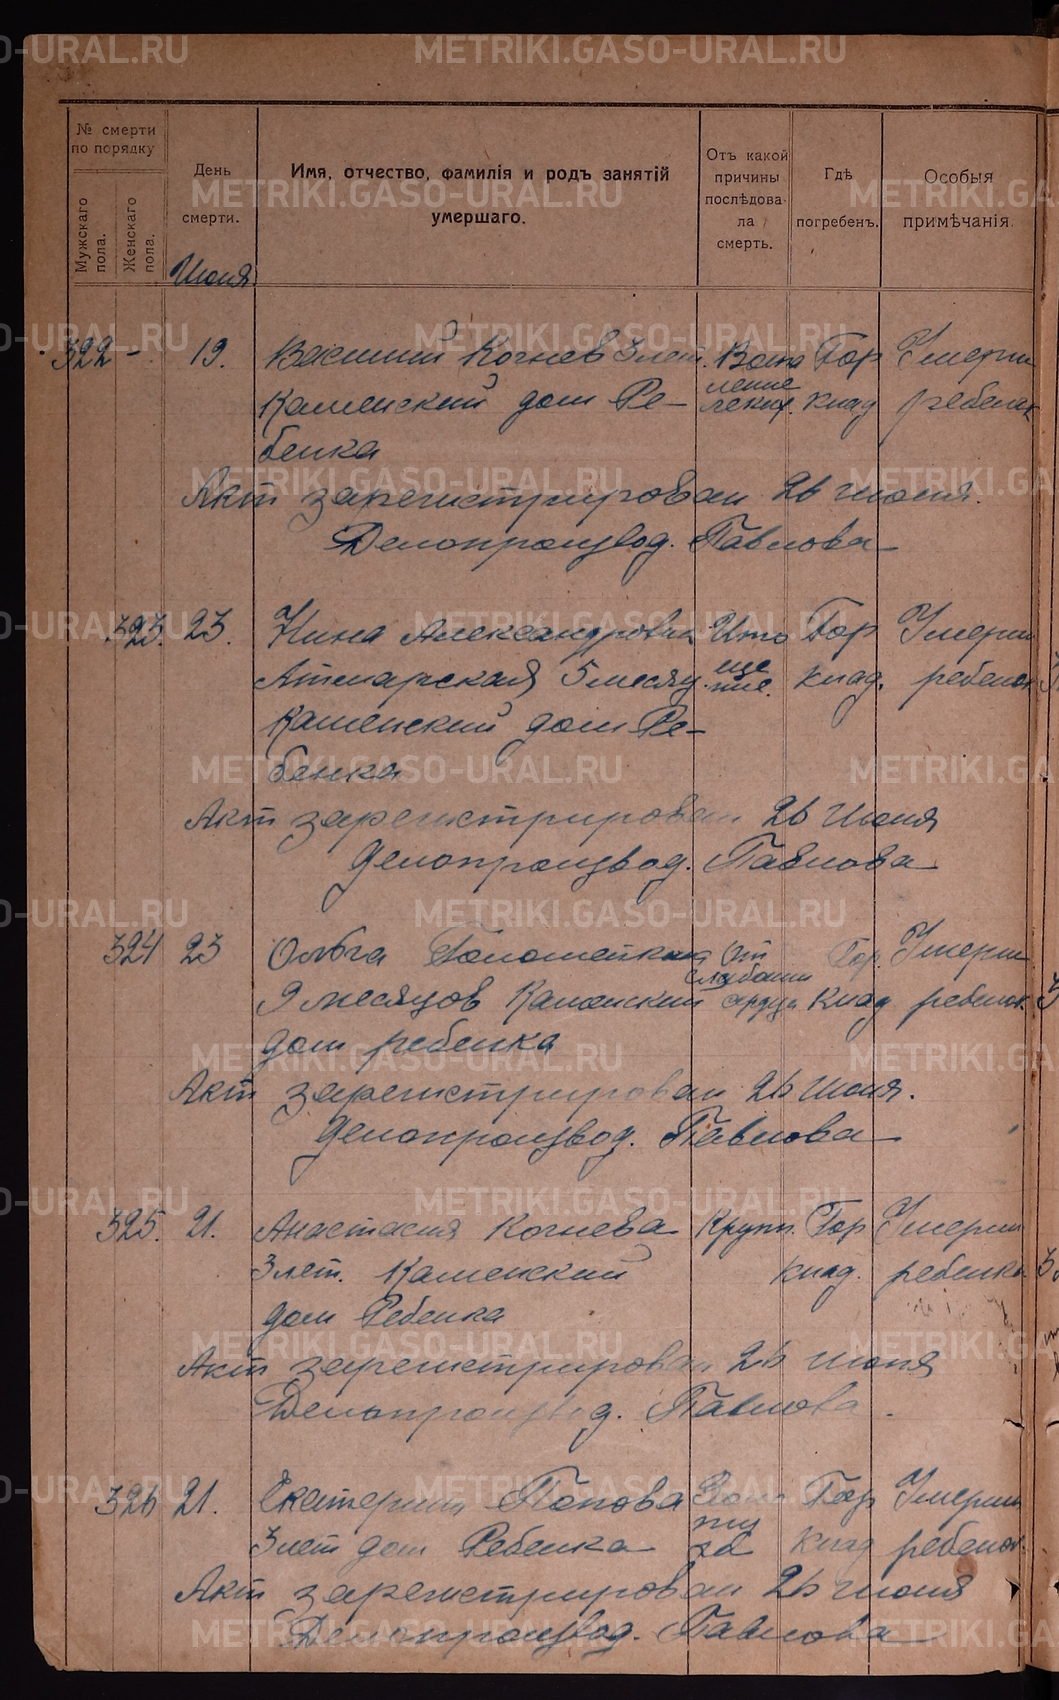 № смерти
по порядку
Мужскаго пола.
Женскаго пола.
День
смерти.
Июня
Имя, отчество, фамилія и родъ занятій
умершаго.
Отъ какой
причины
послѣдова
ла
смерть.
Гдѣ
погребенъ.
Особыя
примѣчанія.
322 - 19. Василий Кочнев 3 лет. Воспа Гор Умерш
Каменский дом Ре- ление легких. клад ребенок
бенка
Акт зарегистрирован 26 июня.
Делопроизвод. Павлова
323. 23. Нина Александровна Исто Гор Умерш
5 месяц. още ние. клад. ребенок
Каменский дом Ре-
бенка
Акт зарегистрирован 26 Июня
Делопроизвод. Павлова
324 23 Ольга От Гор. Умерш
9 месяцов Каменский слабости сердца Клад ребенок
дом ребенка
Акт зарегистрирован 26 Июня.
Делопроизвод. Павлова
325. 21. Анастасия Кочнева Крупп. Гор Умерш
3 лет. Каменский клад. ребенка
дом Ребенка
Акт зарегистрирован 26 июня
Делопроизвод. Павлова.
326 21. Екатерина Попова Гор Умерш
3 лет дом Ребенка клад ребенок.
Акт зарегистрирован 26 июня
Делопроизвод. Павлова
METRIKI.GASO-URAL.RU